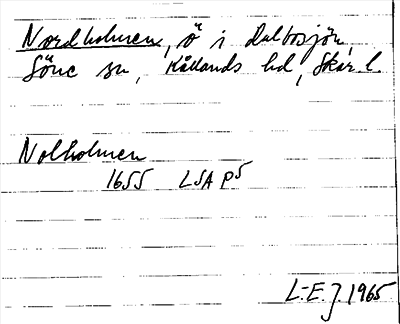 Nordholmen, ö i Dalbosjön,
Söne sn, Kållands hd, Skar. l.
Nolholmen
1655 LSA P5
L.E.J. 1965